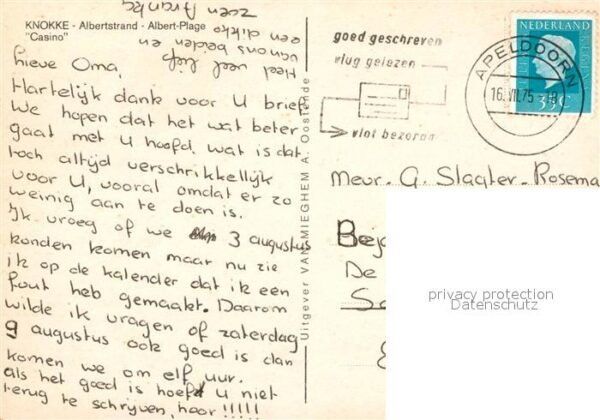 KNOKKE - Albertstrand - Albert-Plage
"Casino"
Lieve Oma,
Hartelijk dank voor U brief
We hopen dat het wat beter
gaat met U hoofd. wat is dat
toch altijd verschrikkelijk
voor U, vooral omdat er zo
weinig aan te doen is.
Ik vroeg of we 3 augustus
konden komen maar nu zie
ik op de kalender dat ik een
fout heb gemaakt. Daarom
wilde ik vragen of zaterdag
9 augustus ook goed is dan
komen we om elf uur.
als het goed is hoeft U niet
terug te schrijven, hoor !!!!!
Heel veel liefs
van ons beiden en
een dikke
zoen Franke
Uitgever VAN MIEGHEM A. Oostende
goed geschreven
vlug gelezen
vlot bezorgd
APELDOORN
16.VII.75
NEDERLAND
35c
Mevr. G. Slagter-Rosema
Beja
De
privacy protection
Datenschutz